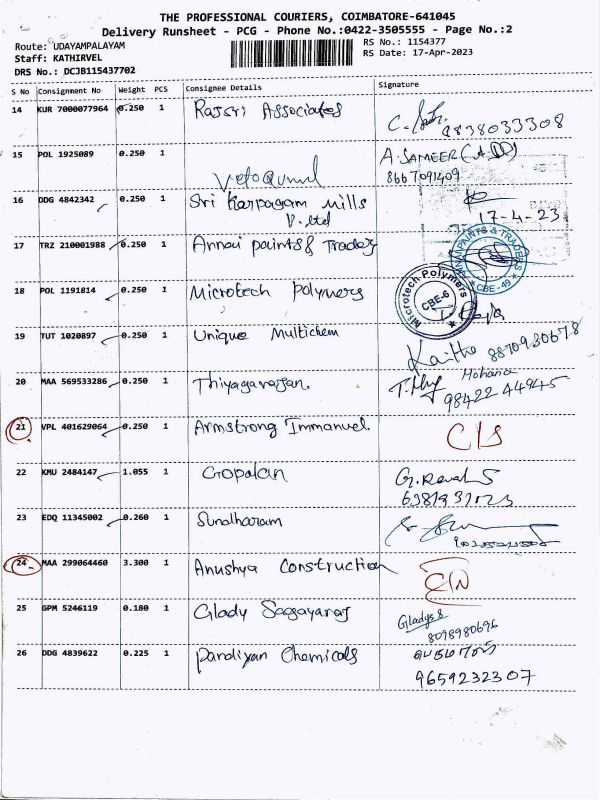 THE PROFESSIONAL COURIERS, COIMBATORE-641045
Delivery Runsheet - PCG - Phone No.:0422-3505555 - Page No.:2
Route: UDAYAMPALAYAM
RS No.: 1154377
Staff: KATHIRVEL
RS Date: 17-Apr-2023
DRS No.: DCJB115437702
S No Consignment No Weight PCS Consignee Details Signature
14 KUR 7000077964 0.250 1 Rajsri Associates
9838033308
15 POL 1925089 0.250 1 A. SAMEER
8667091409
16 DDG 4842342 0.250 1 Sri Karpagam Mills
P. Ltd
17-4-23
17 TRZ 210001988 0.250 1 Annai paints & Traders
PAINTS & TRADERS
CBE-49
18 POL 1191814 0.250 1 Microtech Polymers
Microtech Polymers
CBE-6
19 TUT 1020897 0.250 1 Unique Multichem
20 MAA 569533286 0.250 1 Thiyagarajan.
Mohana
98422 44945
21 VPL 401629064 0.250 1 Armstrong Immanuel.
C/S
22 KMU 2484147 1.055 1 Gopalan
23 EDQ 11345002 0.260 1 Sundharam
24 MAA 299064460 3.300 1 Anushya Construction
25 GPM 5246119 0.180 1 Glady Sagayaraj
Gladys
8098980696
26 DDG 4839622 0.225 1 Pandiyan Chemicals
9659232307